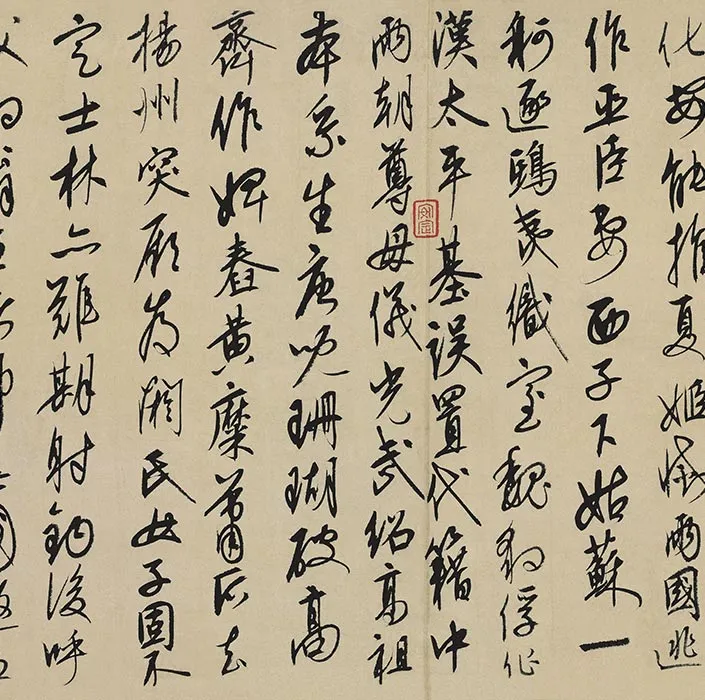 化安能推夏姬滅兩國逃
作巫臣姬西子下姑蘇一
舸逐鴟夷織室魏豹俘作
漢太平基誤置代籍中
兩朝尊母儀光武紹高祖
本系生唐兒珊瑚破高
齊作婢舂黃糜蕭后去
揚州突厥為閼氏女子固不
定士林亦難期射鉤後呼
父釣翁王者師無國